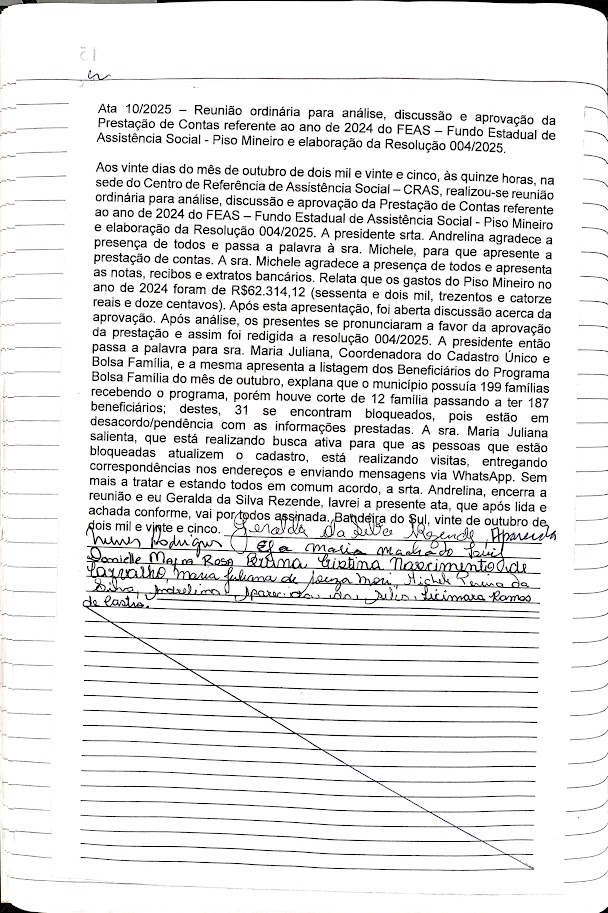 Ata 10/2025 – Reunião ordinária para análise, discussão e aprovação da
Prestação de Contas referente ao ano de 2024 do FEAS – Fundo Estadual de
Assistência Social - Piso Mineiro e elaboração da Resolução 004/2025.
Aos vinte dias do mês de outubro de dois mil e vinte e cinco, às quinze horas, na
sede do Centro de Referência de Assistência Social – CRAS, realizou-se reunião
ordinária para análise, discussão e aprovação da Prestação de Contas referente
ao ano de 2024 do FEAS – Fundo Estadual de Assistência Social - Piso Mineiro
e elaboração da Resolução 004/2025. A presidente srta. Andrelina agradece a
presença de todos e passa a palavra à sra. Michele, para que apresente a
prestação de contas. A sra. Michele agradece a presença de todos e apresenta
as notas, recibos e extratos bancários. Relata que os gastos do Piso Mineiro no
ano de 2024 foram de R$62.314,12 (sessenta e dois mil, trezentos e catorze
reais e doze centavos). Após esta apresentação, foi aberta discussão acerca da
aprovação. Após análise, os presentes se pronunciaram a favor da aprovação
da prestação e assim foi redigida a resolução 004/2025. A presidente então
passa a palavra para sra. Maria Juliana, Coordenadora do Cadastro Único e
Bolsa Família, e a mesma apresenta a listagem dos Beneficiários do Programa
Bolsa Família do mês de outubro, explana que o município possuía 199 famílias
recebendo o programa, porém houve corte de 12 família passando a ter 187
beneficiários; destes, 31 se encontram bloqueados, pois estão em
desacordo/pendência com as informações prestadas. A sra. Maria Juliana
salienta, que está realizando busca ativa para que as pessoas que estão
bloqueadas atualizem o cadastro, está realizando visitas, entregando
correspondências nos endereços e enviando mensagens via WhatsApp. Sem
mais a tratar e estando todos em comum acordo, a srta. Andrelina, encerra a
reunião e eu Geralda da Silva Rezende, lavrei a presente ata, que após lida e
achada conforme, vai por todos assinada. Bandeira do Sul, vinte de outubro de
dois mil e vinte e cinco. Geralda da Silva Rezende, Aparecida
Nunes Rodrigues, Maria Machado
Danielle Rosa Cristina Nascimento de
Carvalho, Maria Juliana de Souza Michele Pereira da
Silva, Andrelina Aparecida da Silva, Ramos
de Castro.